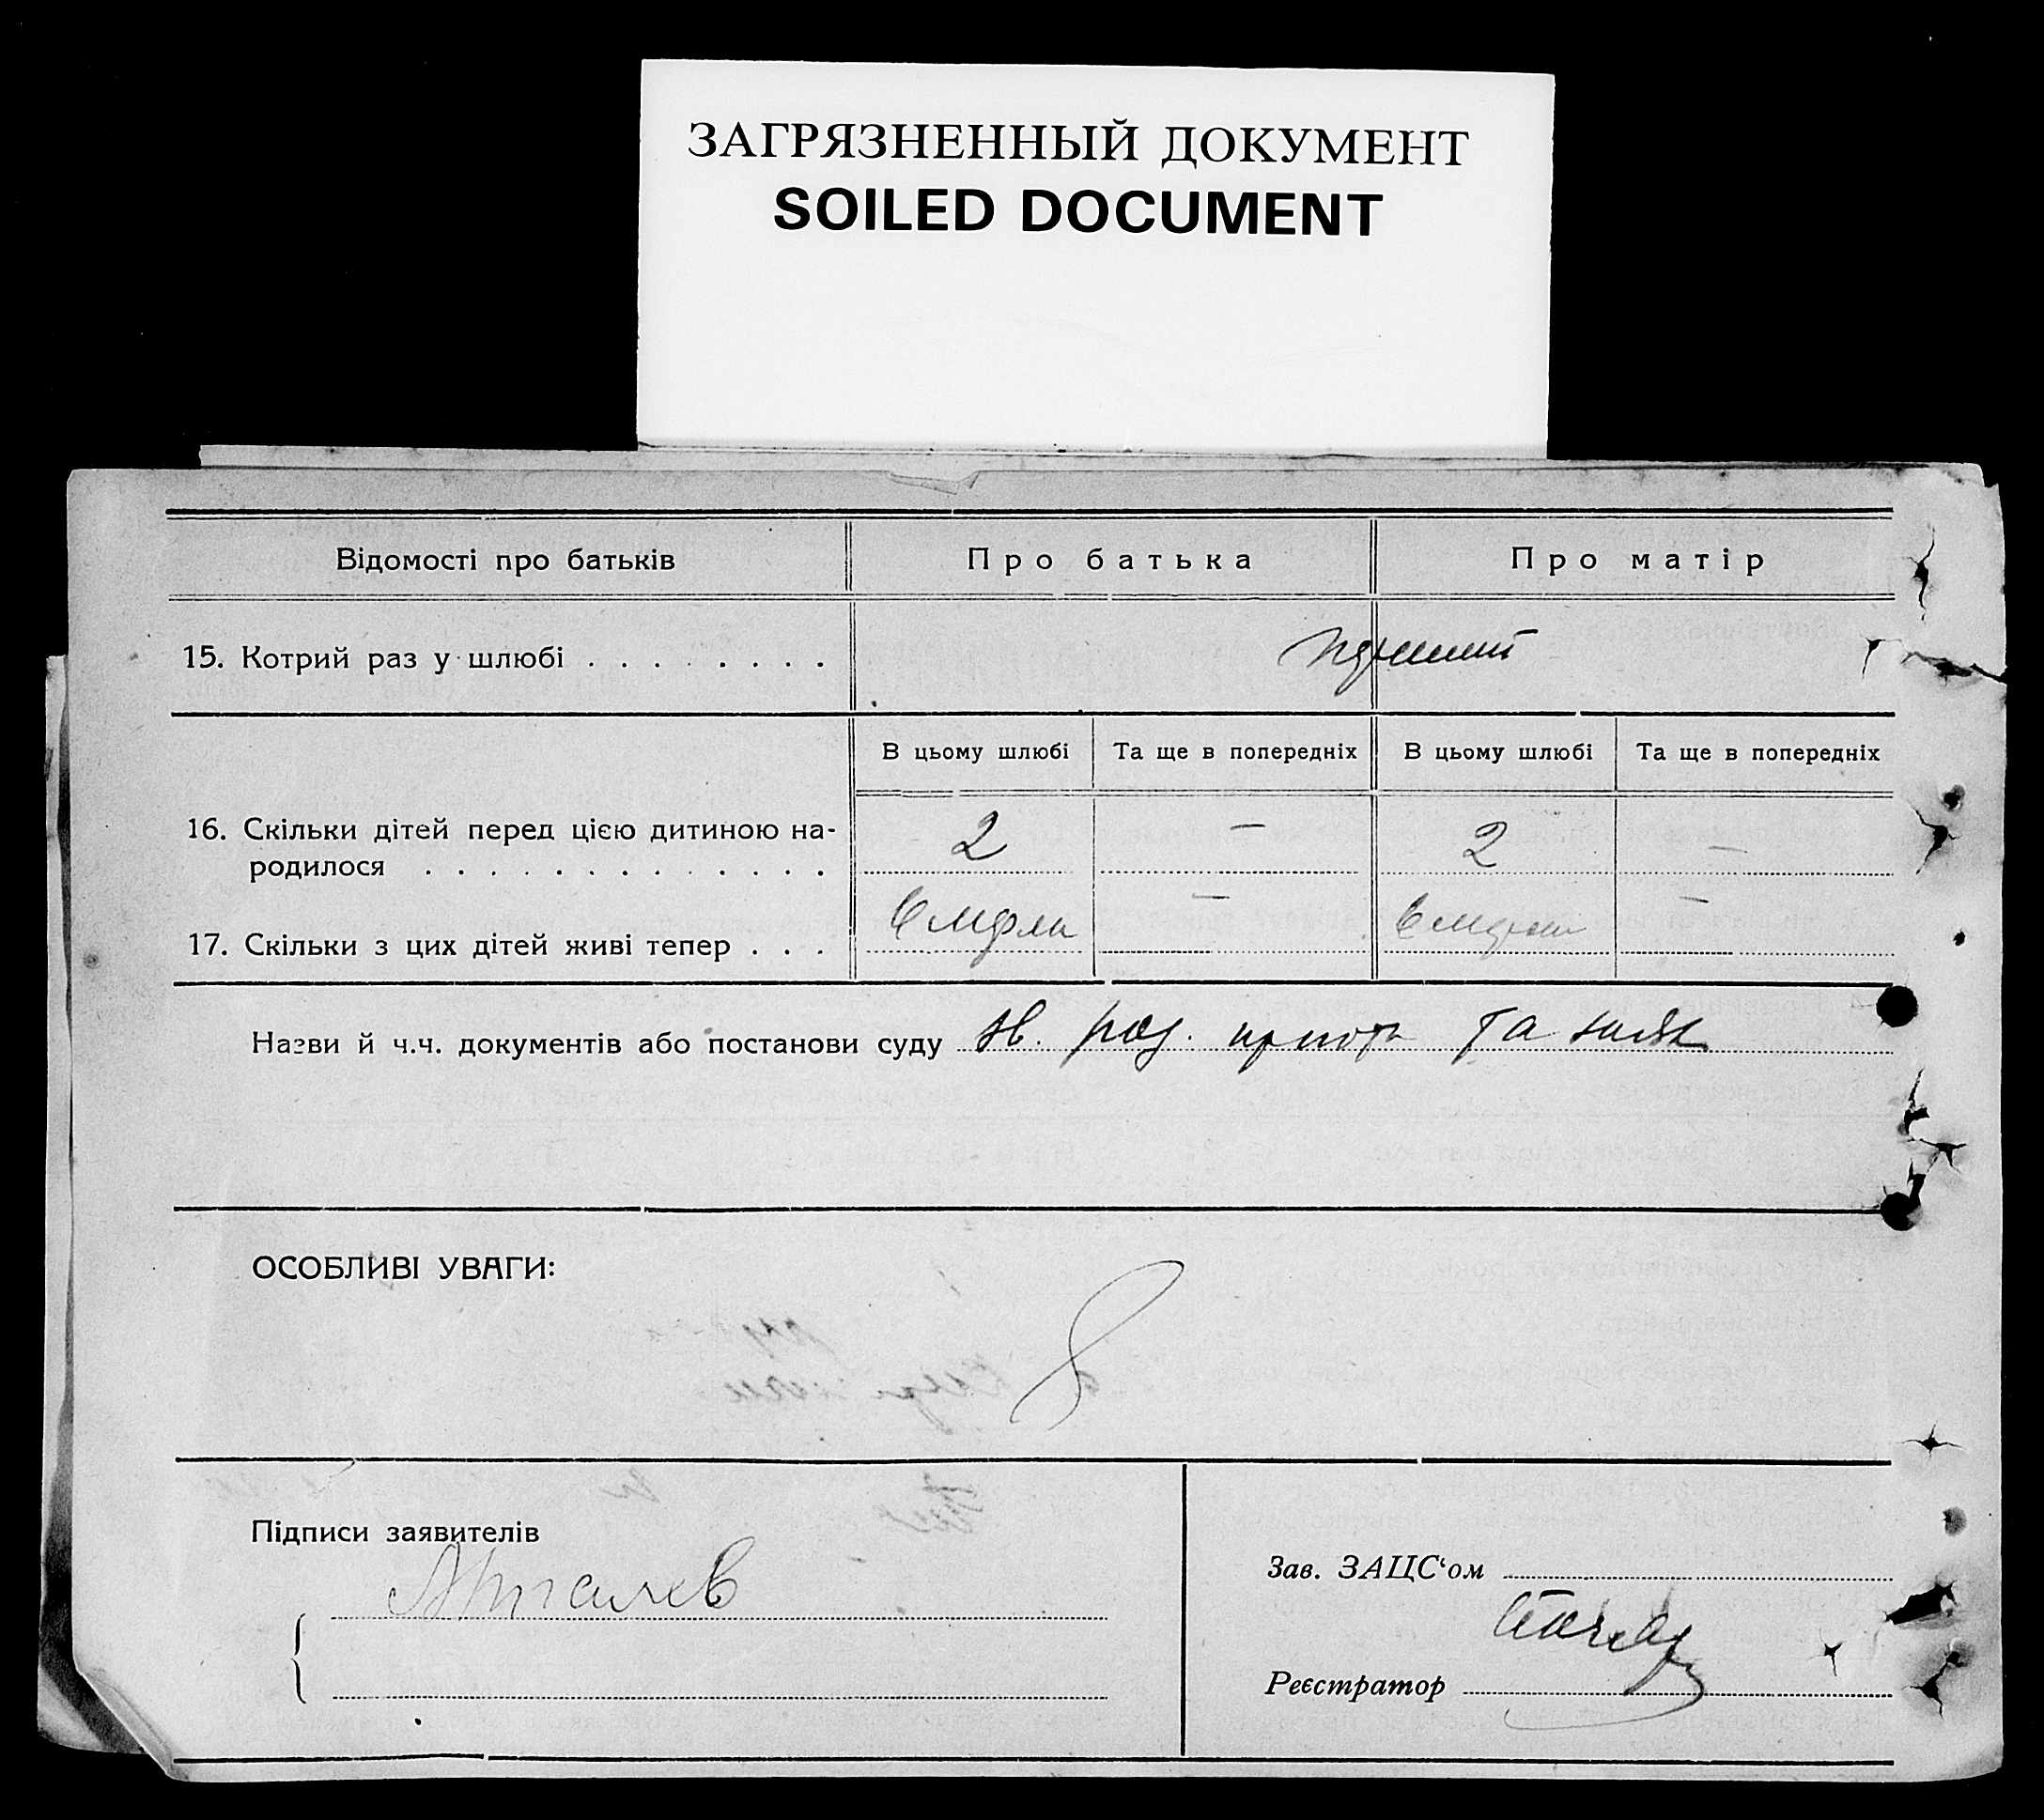 ЗАГРЯЗНЕННЫЙ ДОКУМЕНТ
SOILED DOCUMENT
Відомості про батьків Про батька Про матір
15. Котрий раз у шлюбі . . . . . . . .
В цьому шлюбі Та ще в попередніх В цьому шлюбі Та ще в попередніх
16. Скільки дітей перед цією дитиною на-
родилося . . . . . . . . . . . . . 2 — 2 —
17. Скільки з цих дітей живі тепер . . . — —
Назви й ч.ч. документів або постанови суду та
ОСОБЛИВІ УВАГИ:
Підписи заявителів
Зав. ЗАЦС'ом
Реєстратор